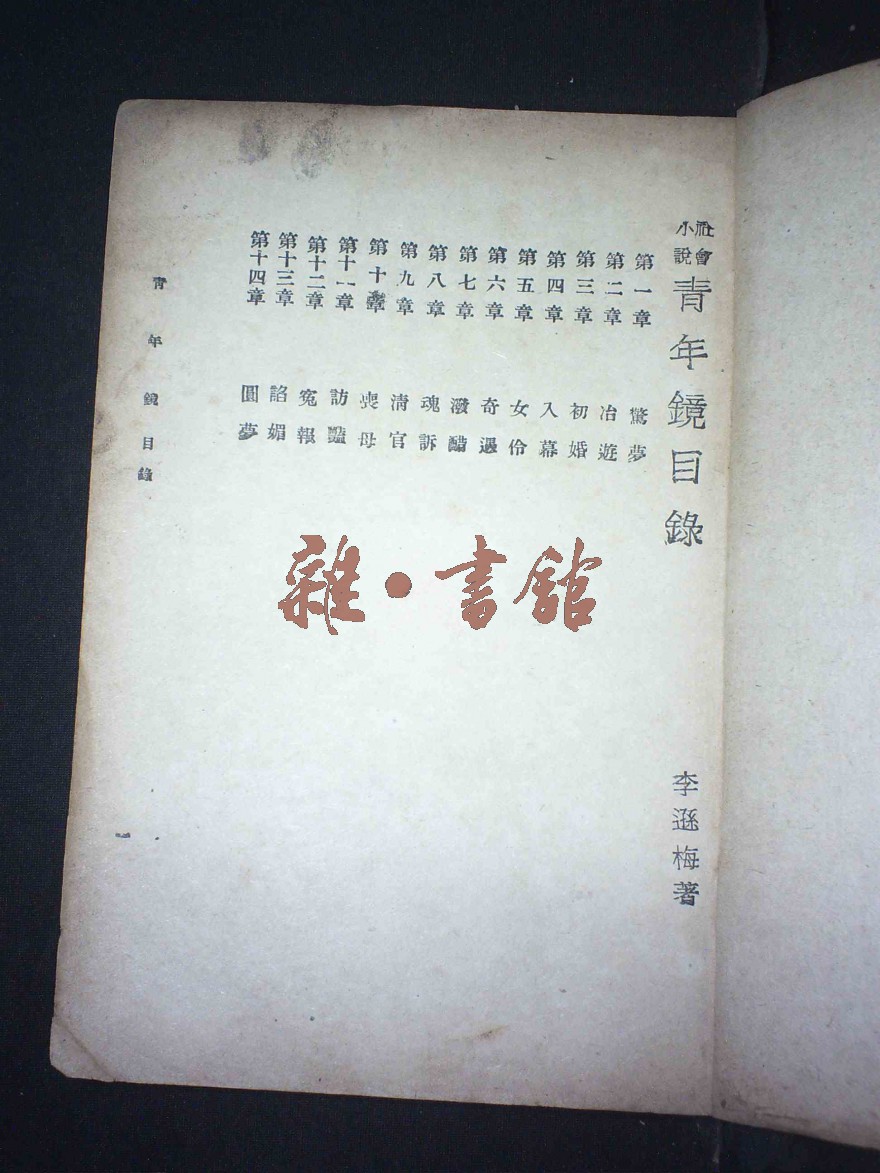 社會小說 青年鏡目錄 李遜梅著
第一章 驚夢
第二章 冶遊
第三章 初婚
第四章 入幕
第五章 女伶
第六章 奇遇
第七章 潑醋
第八章 魂訴
第九章 清官
第十章 喪母
第十一章 訪豔
第十二章 冤報
第十三章 諂媚
第十四章 圓夢
青年鏡目錄
一
雜·書館